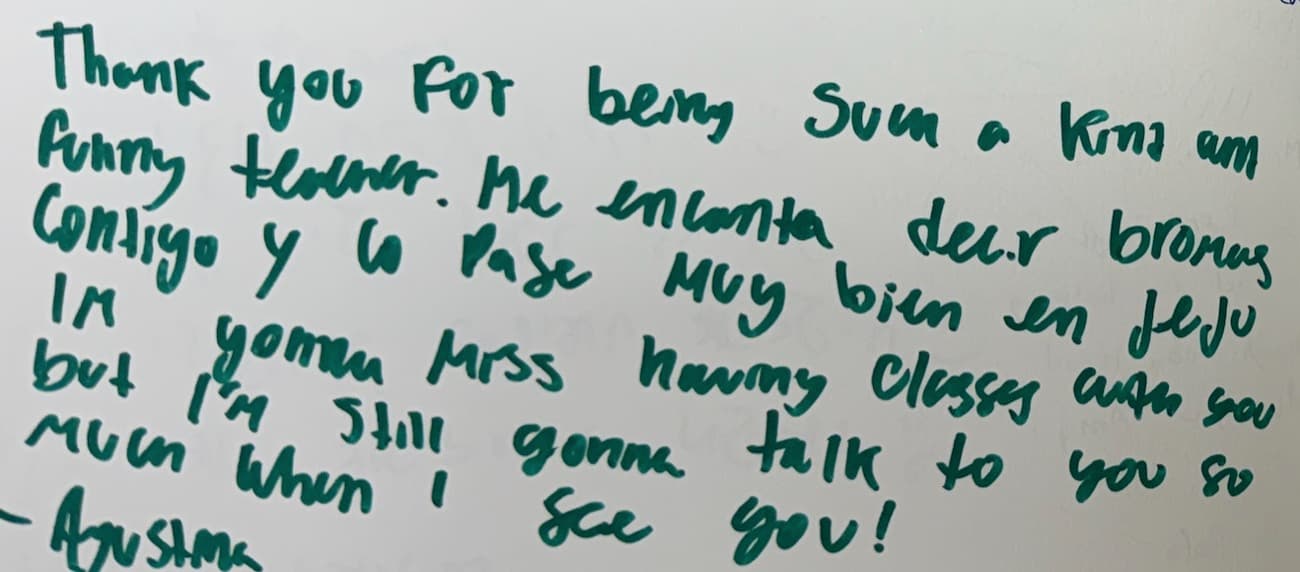 Thank you For being such a kind am
funny teacher. Me encanta decir bromas
Contigo y lo Pase Muy bien en JeJu
IM gonna Miss having classes with you
but I'm still gonna talk to you so
Much When I see you!
- Agustina